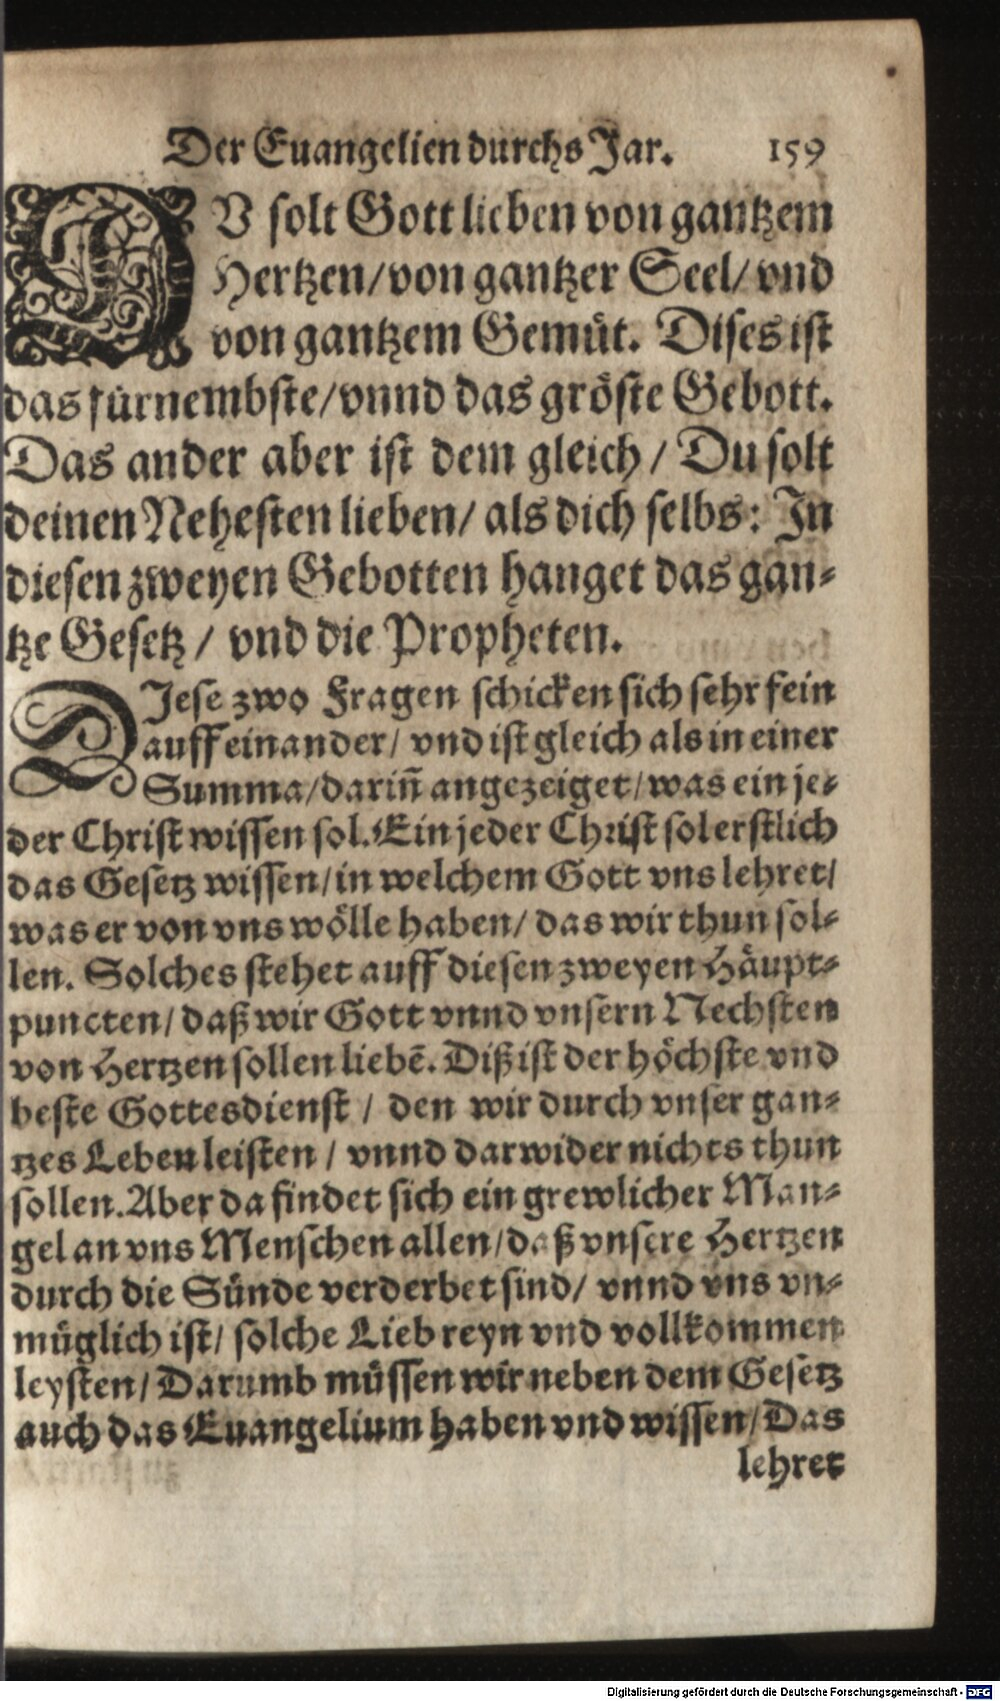 Der Euangelien durchs Jar. 159
DV solt Gott lieben von gantzem
Hertzen/ von gantzer Seel/ vnd
von gantzem Gemüt. Dises ist
das fürnembste/ vnnd das gröste Gebott.
Das ander aber ist dem gleich / Du solt
deinen Nehesten lieben/ als dich selbs: In
diesen zweyen Gebotten hanget das gan-
tze Gesetz / vnd die Propheten.
DIese zwo Fragen schicken sich sehr fein
auff einander/ vnd ist gleich als in einer
Summa/ dariñ angezeiget/ was ein je-
der Christ wissen sol. Ein jeder Christ sol erstlich
das Gesetz wissen/ in welchem Gott vns lehret/
was er von vns wölle haben/ das wir thun sol-
len. Solches stehet auff diesen zweyen Häupt-
puncten/ daß wir Gott vnnd vnsern Nechsten
von Hertzen sollen liebẽ. Diß ist der höchste vnd
beste Gottesdienst / den wir durch vnser gan-
tzes Leben leisten / vnnd darwider nichts thun
sollen. Aber da findet sich ein grewlicher Man-
gel an vns Menschen allen/ daß vnsere Hertzen
durch die Sünde verderbet sind/ vnnd vns vn-
müglich ist/ solche Lieb reyn vnd vollkommen
leysten/ Darumb müssen wir neben dem Gesetz
auch das Euangelium haben vnd wissen/ Das
lehret
Digitalisierung gefördert durch die Deutsche Forschungsgemeinschaft - DFG